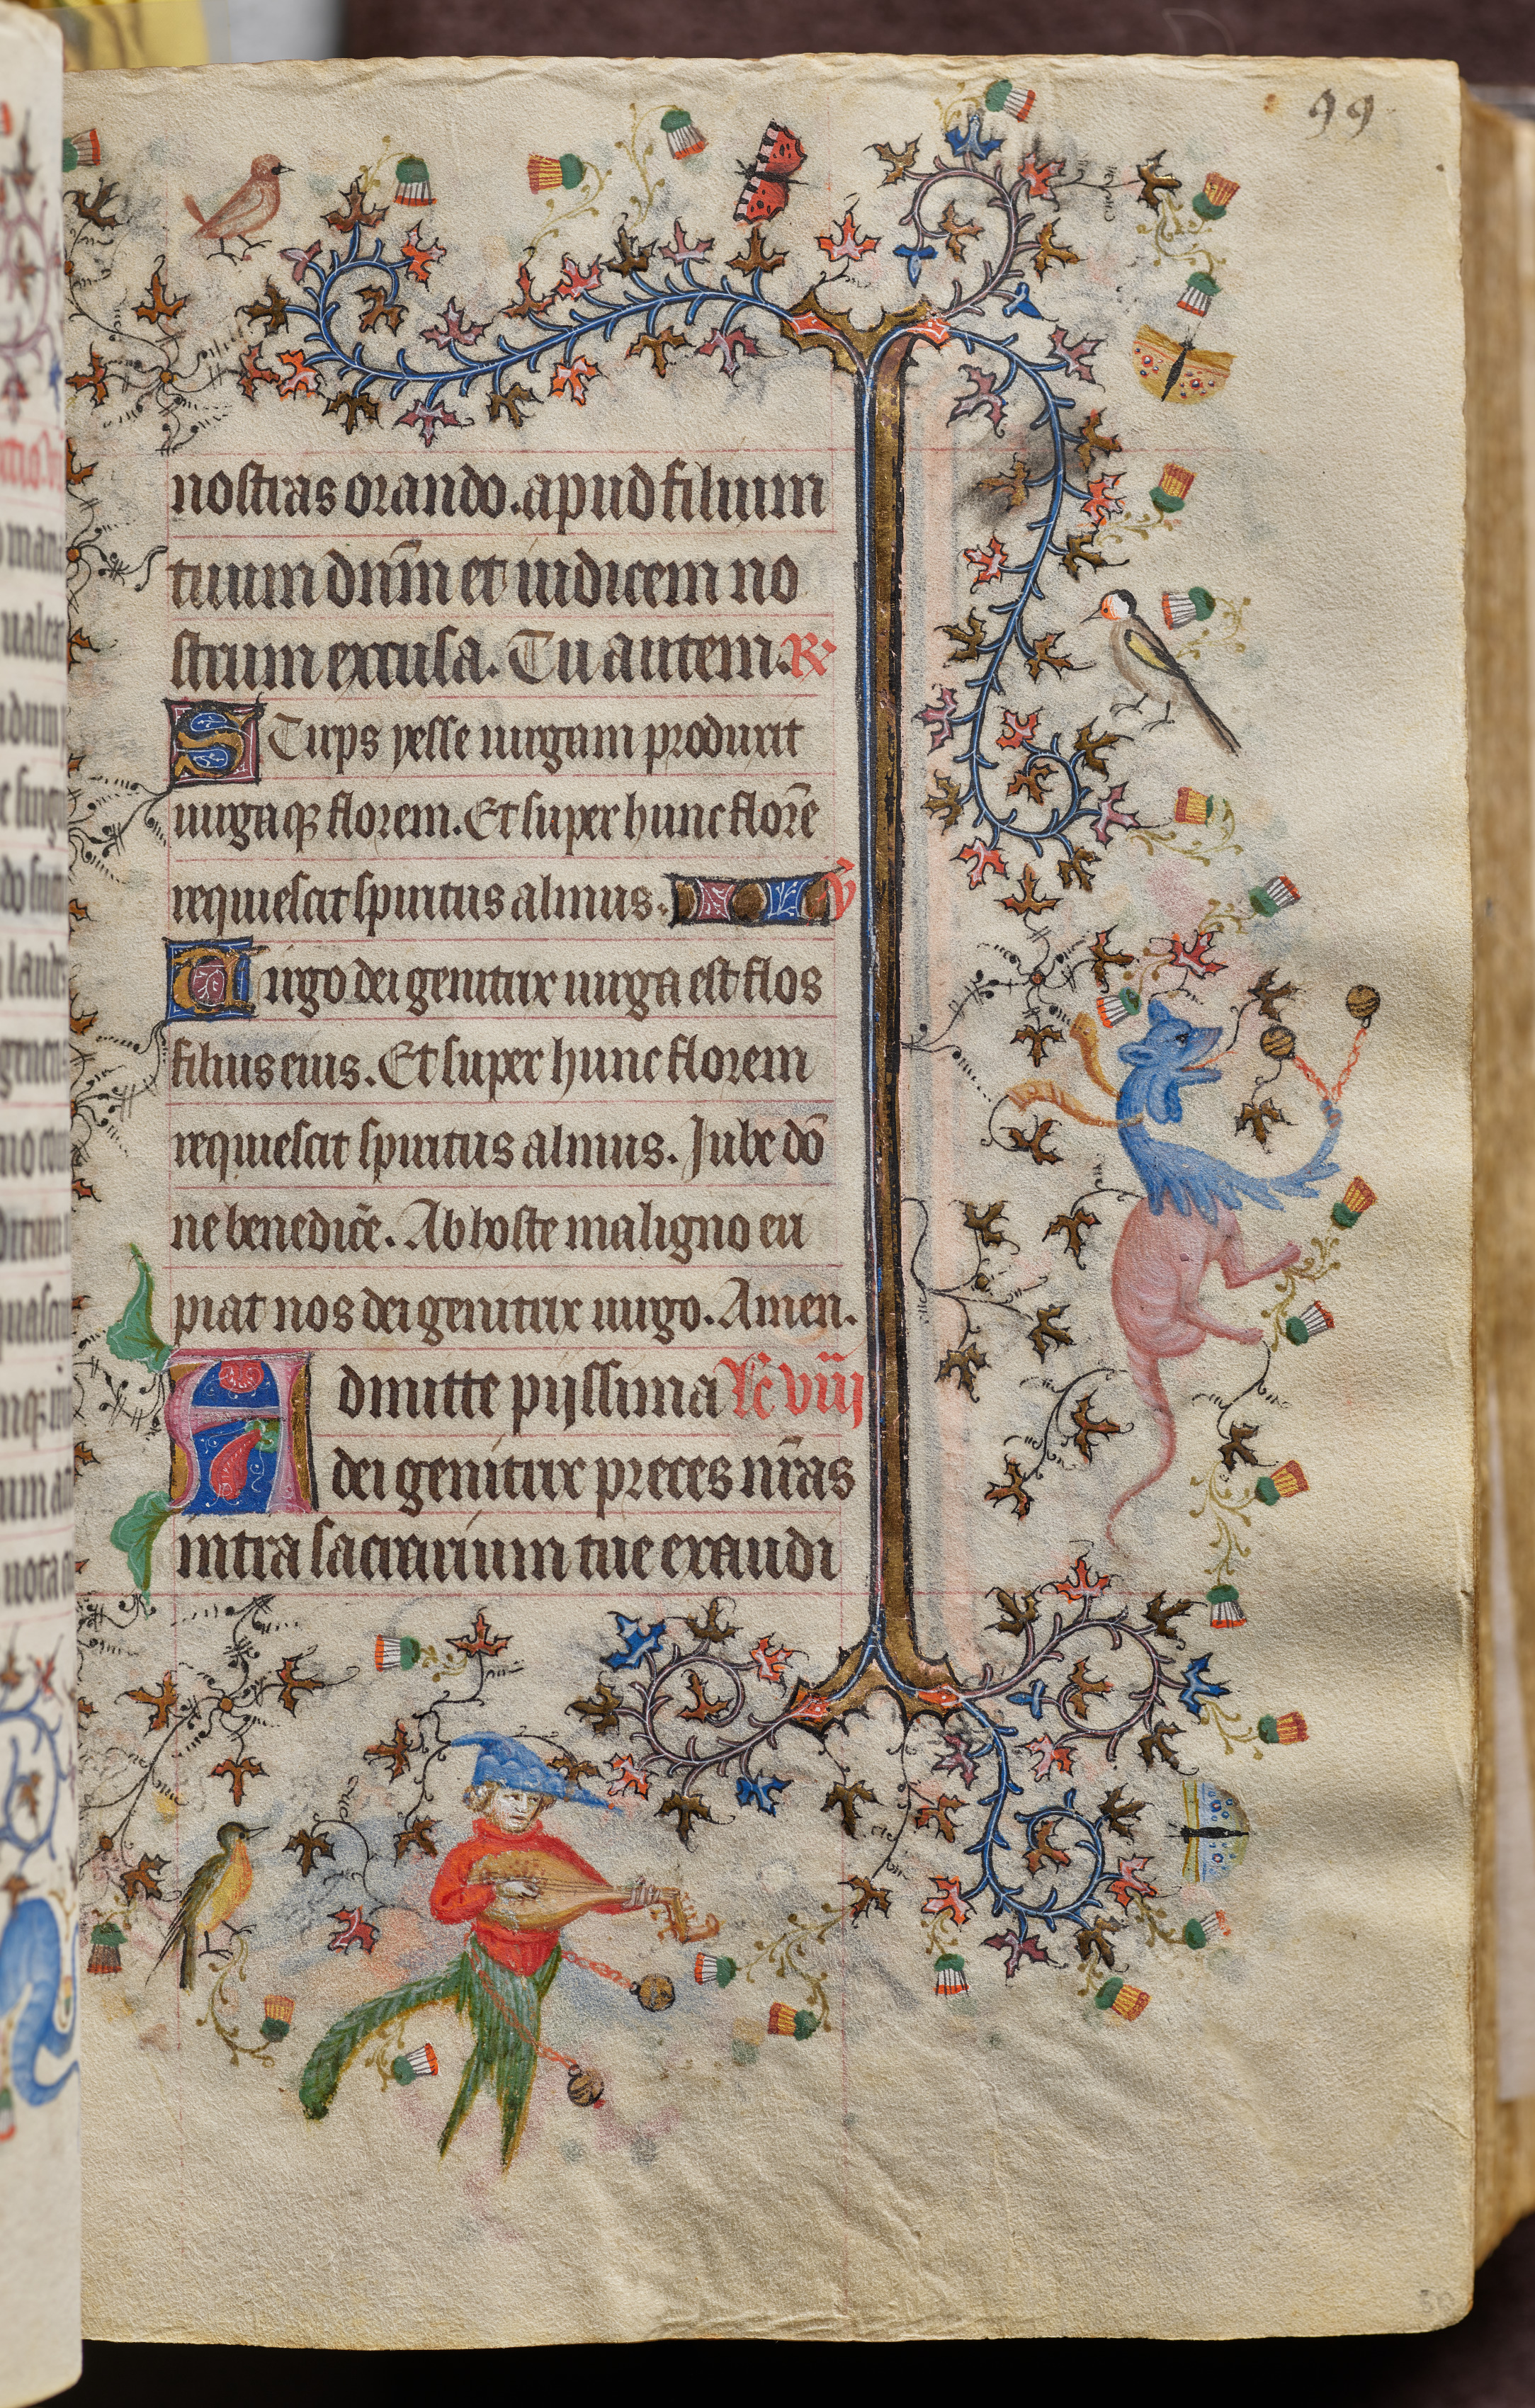 99
nostras orando. apud filium
tuum dñm et iudicem no
strum excusa. Tu autem. R
Stirps yesse uirgam produxit
uirgaqꝫ florem. Et super hunc florē
requiescit spiritus almus. v̄
Uirgo dei genitrix uirga est flos
filius eius. Et super hunc florem
requiescit spiritus almus. Jube dō
ne benedicē. Ab hoste maligno eri
piat nos dei genitrix uirgo. Amen.
Admitte pijssima lc̄ viij
dei genitrix preces nr̄as
intra sacrarium tue exaudi
50